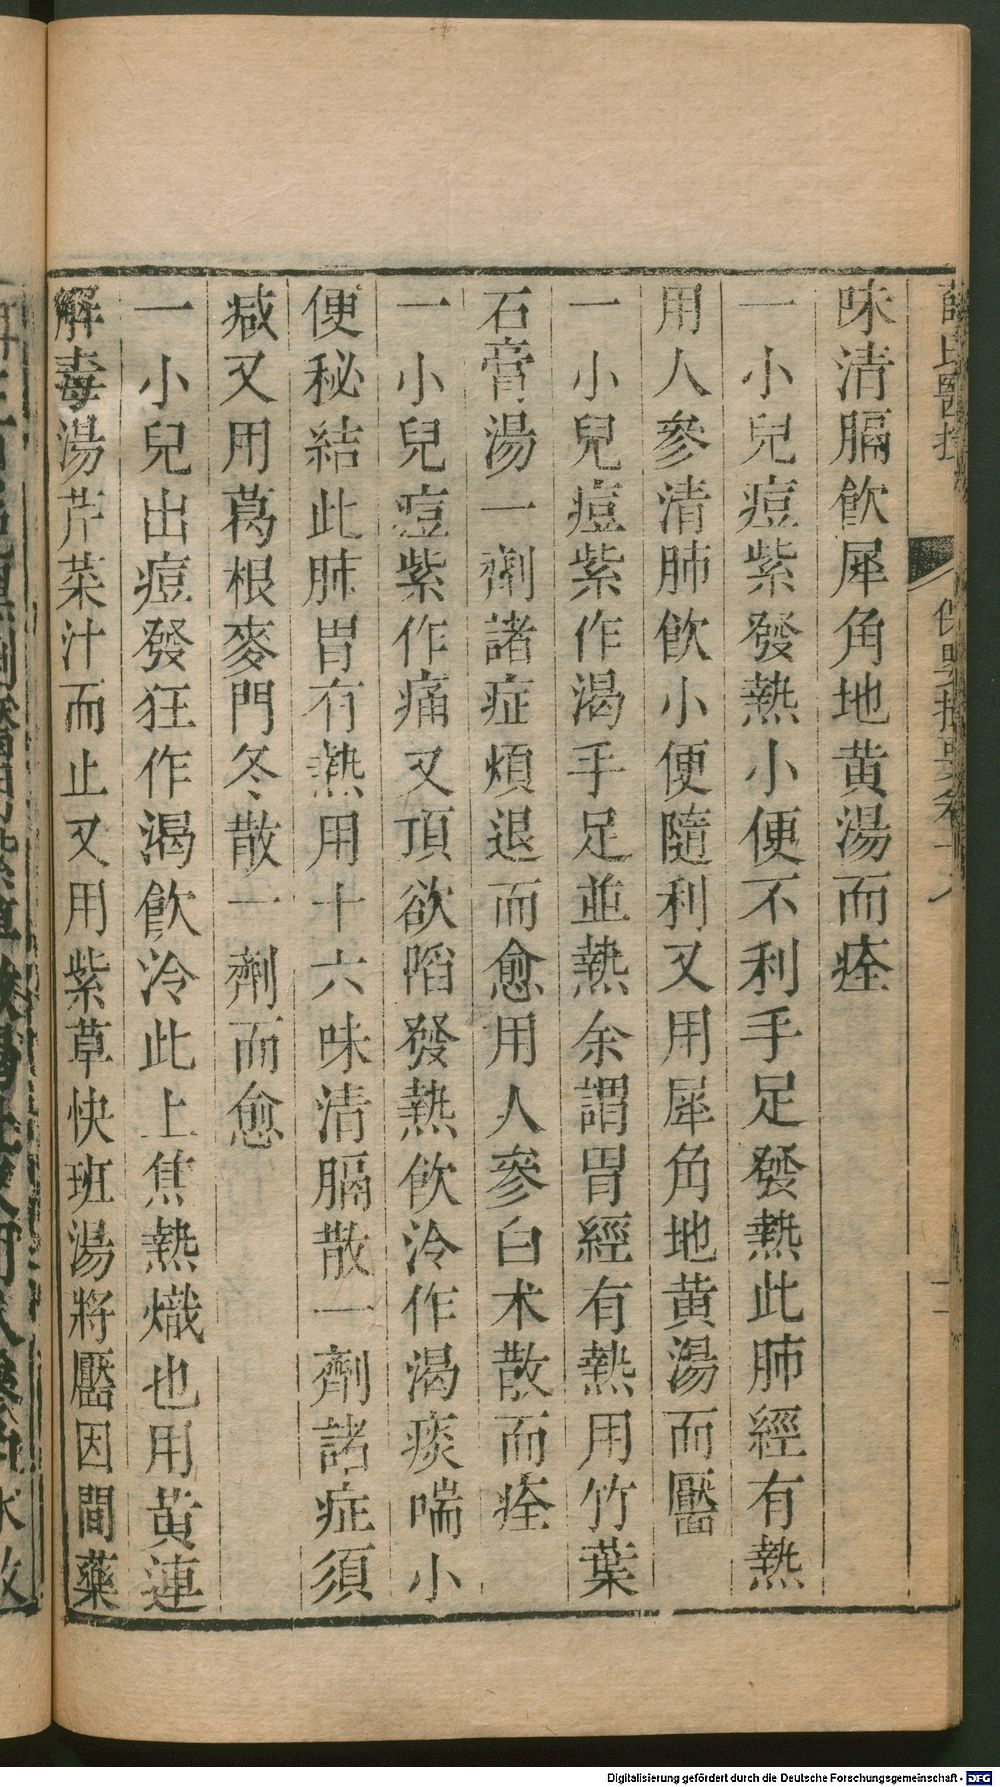 味清膈飲犀角地黄湯而痊
一小兒痘紫發熱小便不利手足發熱此肺經有熱
用人參清肺飲小便隨利又用犀角地黄湯而靨
一小兒痘紫作渴手足並熱余謂胃經有熱用竹葉
石膏湯一劑諸症頓退而愈用人參白术散而痊
一小兒痘紫作痛又頂欲陷發熱飲冷作渴痰喘小
便秘結此肺胃有熱用十六味清膈散一劑諸症須
減又用葛根麥門冬散一劑而愈
一小兒出痘發狂作渴飲冷此上焦熱熾也用黄連
解毒湯芹菜汁而止又用紫草快班湯將靨因間藥
Digitalisierung gefördert durch die Deutsche Forschungsgemeinschaft - DFG